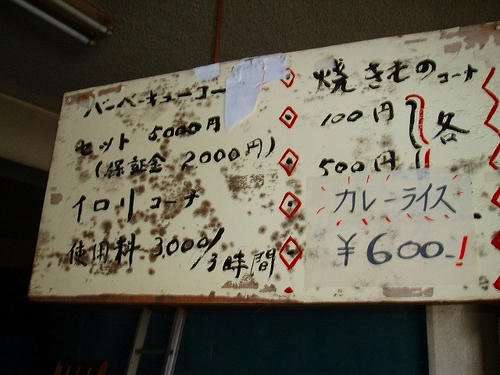 バーベキューコー
セット 5000円
(保証金 2000円)
イロリ コーナ
使用料 3,000/3時間
焼きもの コーナ
100円
各
500円
カレーライス
¥600-!